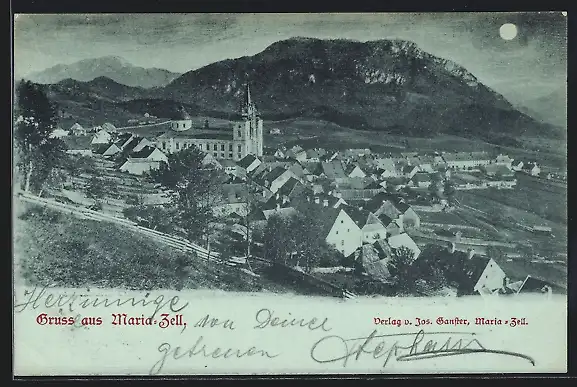 Herzinnige
Gruss aus Maria-Zell, von Deiner
getreuen Stephanie
Verlag v. Jos. Ganster, Maria-Zell.